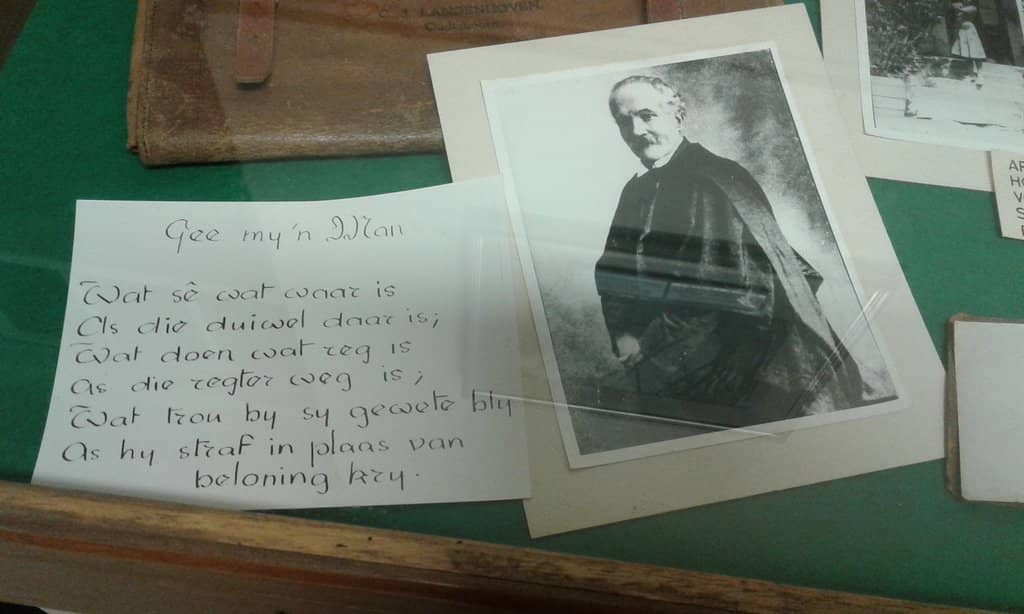 LANGENHOVEN.
Gee my 'n Man
Wat sê wat waar is
As die duiwel daar is;
Wat doen wat reg is
As die regter weg is;
Wat trou by sy gewete bly
As hy straf in plaas van
beloning kry.